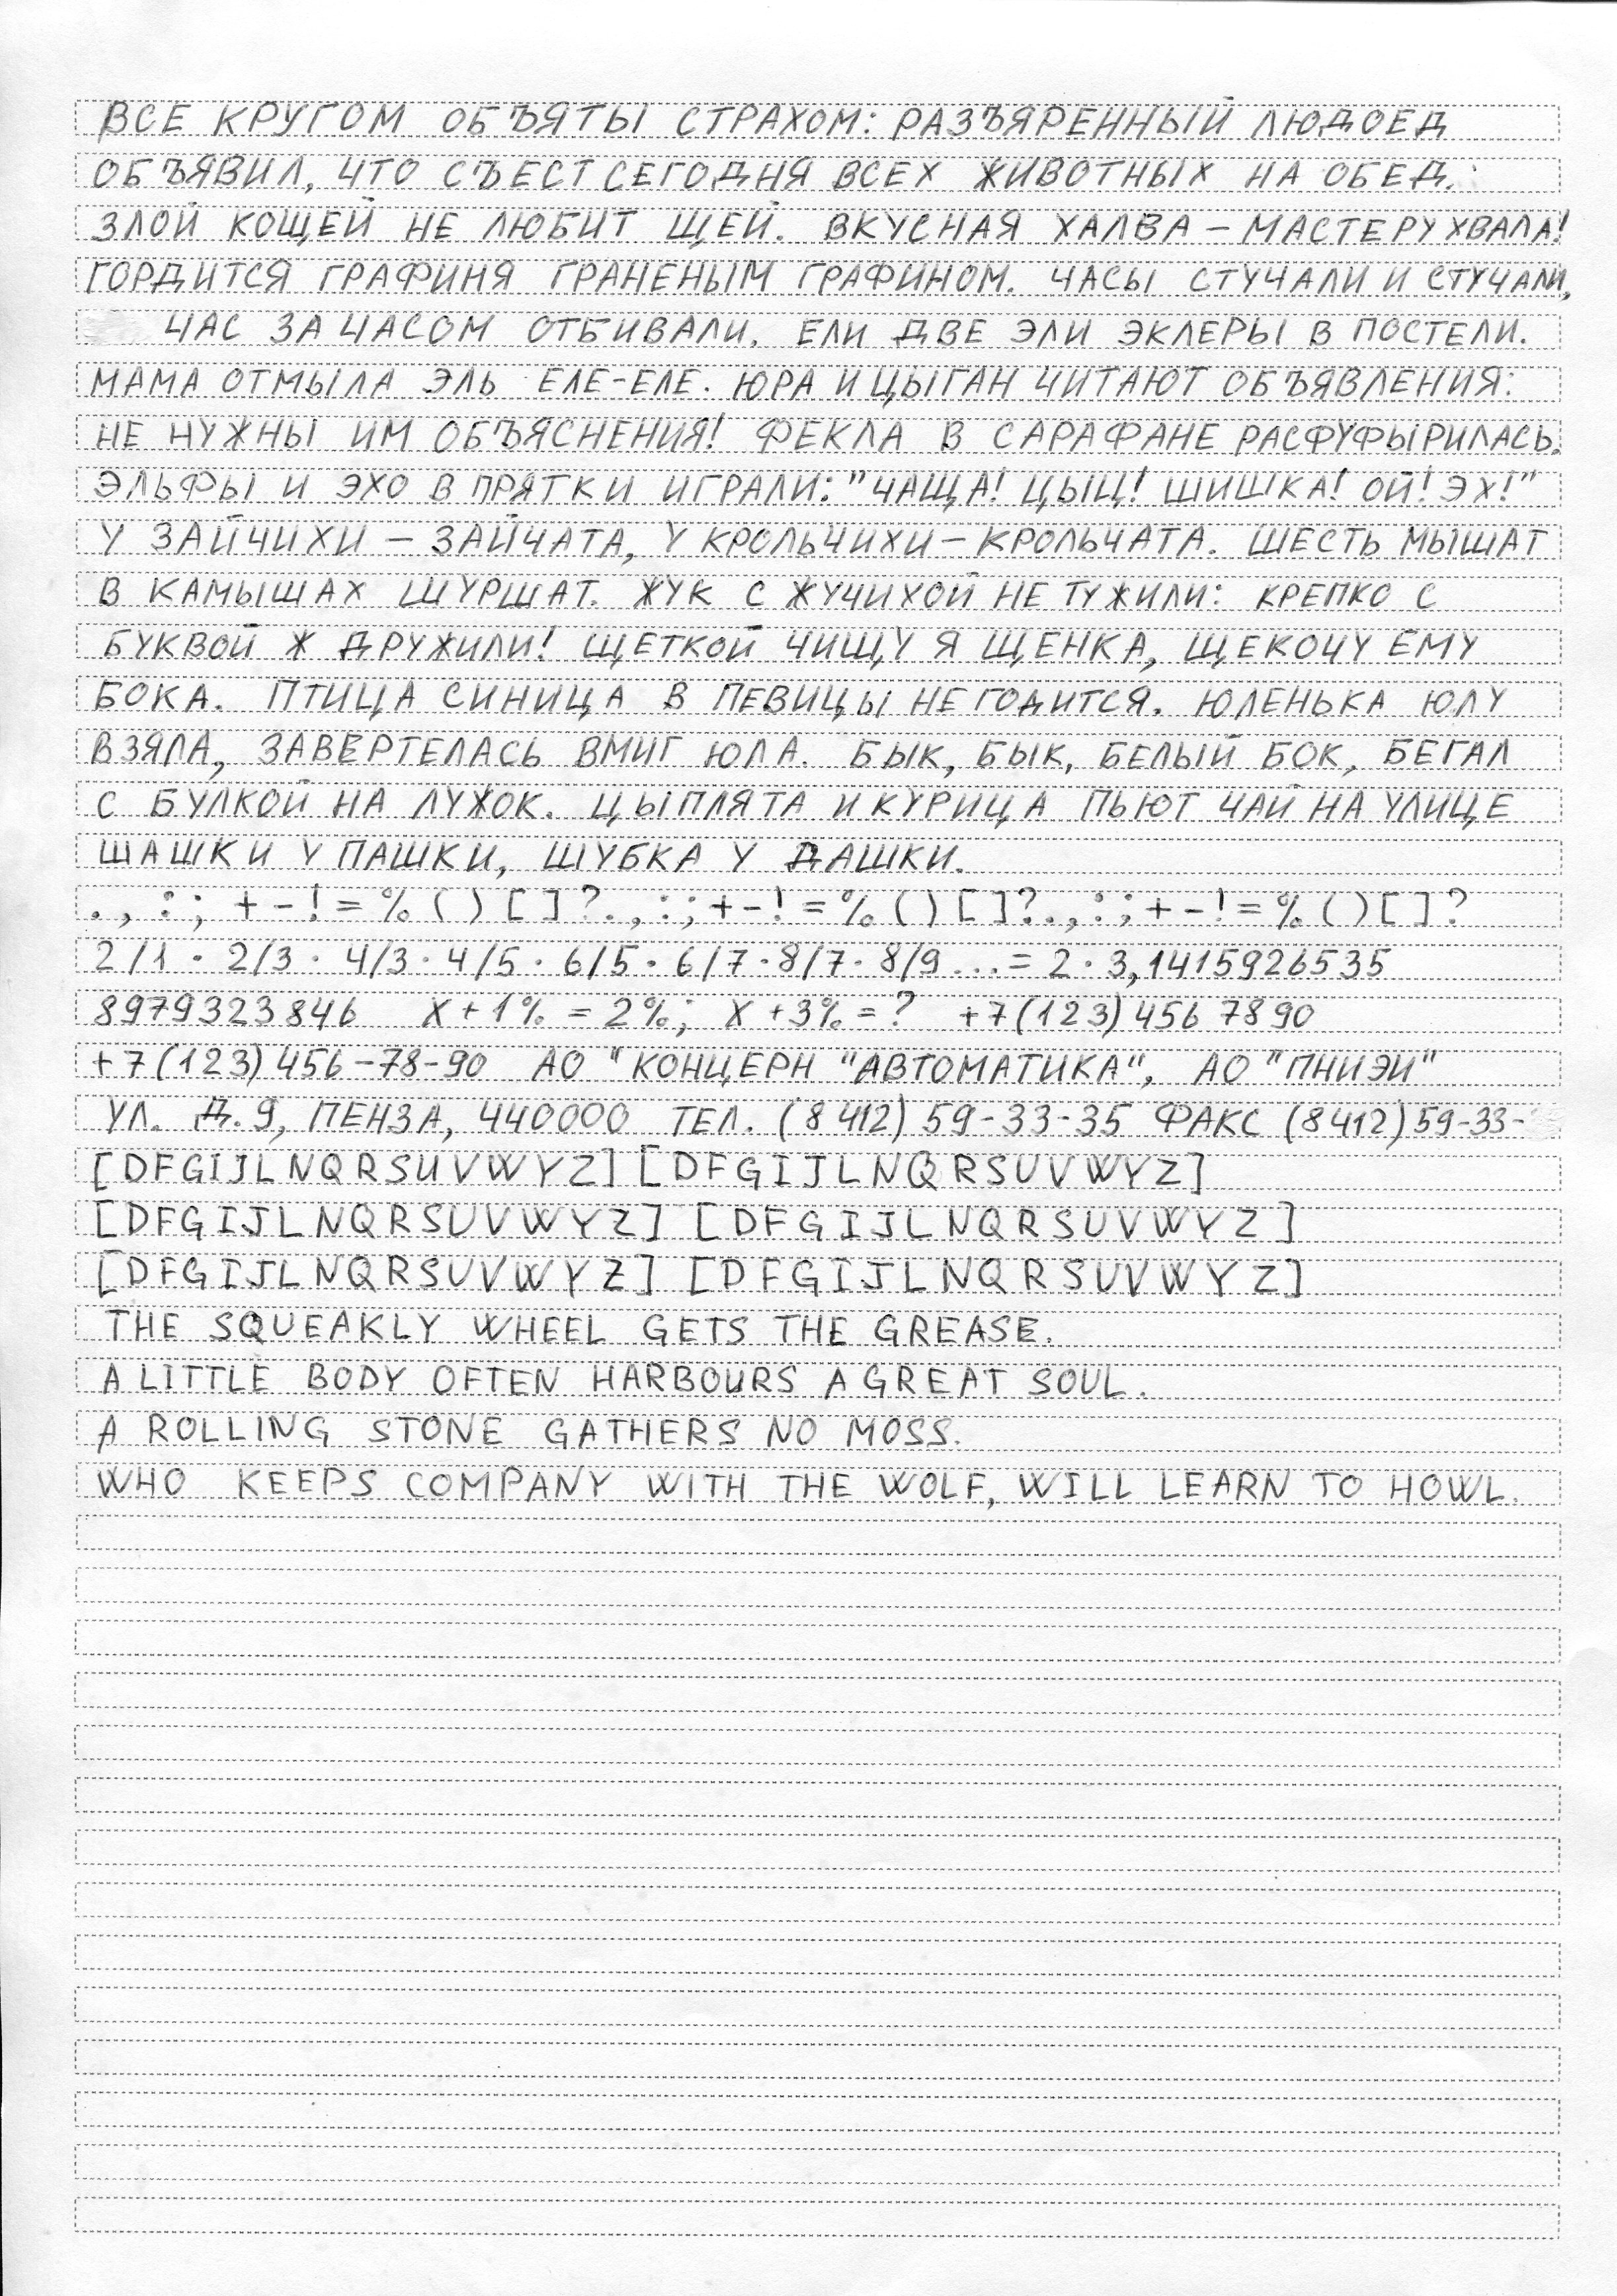 ВСЕ КРУГОМ ОБЪЯТЫ СТРАХОМ: РАЗЪЯРЕННЫЙ ЛЮДОЕД
ОБЪЯВИЛ, ЧТО СЪЕСТ СЕГОДНЯ ВСЕХ ЖИВОТНЫХ НА ОБЕД.
ЗЛОЙ КОЩЕЙ НЕ ЛЮБИТ ЩЕЙ. ВКУСНАЯ ХАЛВА – МАСТЕРУ ХВАЛА!
ГОРДИТСЯ ГРАФИНЯ ГРАНЕНЫМ ГРАФИНОМ. ЧАСЫ СТУЧАЛИ И СТУЧАЛИ,
ЧАС ЗА ЧАСОМ ОТБИВАЛИ. ЕЛИ ДВЕ ЭЛИ ЭКЛЕРЫ В ПОСТЕЛИ.
МАМА ОТМЫЛА ЭЛЬ ЕЛЕ-ЕЛЕ. ЮРА И ЦЫГАН ЧИТАЮТ ОБЪЯВЛЕНИЯ:
НЕ НУЖНЫ ИМ ОБЪЯСНЕНИЯ! ФЕКЛА В САРАФАНЕ РАСФУФЫРИЛАСЬ.
ЭЛЬФЫ И ЭХО В ПРЯТКИ ИГРАЛИ: "ЧАЩА! ЦЫЦ! ШИШКА! ОЙ! ЭХ!"
У ЗАЙЧИХИ – ЗАЙЧАТА, У КРОЛЬЧИХИ – КРОЛЬЧАТА. ШЕСТЬ МЫШАТ
В КАМЫШАХ ШУРШАТ. ЖУК С ЖУЧИХОЙ НЕ ТУЖИЛИ: КРЕПКО С
БУКВОЙ Ж ДРУЖИЛИ! ЩЕТКОЙ ЧИЩУ Я ЩЕНКА, ЩЕКОЧУ ЕМУ
БОКА. ПТИЦА СИНИЦА В ПЕВИЦЫ НЕ ГОДИТСЯ. ЮЛЕНЬКА ЮЛУ
ВЗЯЛА, ЗАВЕРТЕЛАСЬ ВМИГ ЮЛА. БЫК, БЫК, БЕЛЫЙ БОК, БЕГАЛ
С БУЛКОЙ НА ЛУЖОК. ЦЫПЛЯТА И КУРИЦА ПЬЮТ ЧАЙ НА УЛИЦЕ
ШАШКИ У ПАШКИ, ШУБКА У ДАШКИ.
. , : ; + - ! = % ( ) [ ] ? . , : ; + - ! = % ( ) [ ] ? . , : ; + - ! = % ( ) [ ] ?
2/1 · 2/3 · 4/3 · 4/5 · 6/5 · 6/7 · 8/7 · 8/9 ... = 2 · 3,1415926535
8979323846 X + 1% = 2%; X + 3% = ? +7(123) 456 7890
+7(123) 456-78-90 АО "КОНЦЕРН "АВТОМАТИКА", АО "ПНИЭИ"
УЛ. Д. 9, ПЕНЗА, 440000 ТЕЛ. (8412) 59-33-35 ФАКС (8412) 59-33-
[DFGIJLNQRSUVWYZ] [DFGIJLNQRSUVWYZ]
[DFGIJLNQRSUVWYZ] [DFGIJLNQRSUVWYZ]
[DFGIJLNQRSUVWYZ] [DFGIJLNQRSUVWYZ]
THE SQUEAKLY WHEEL GETS THE GREASE.
A LITTLE BODY OFTEN HARBOURS A GREAT SOUL.
A ROLLING STONE GATHERS NO MOSS.
WHO KEEPS COMPANY WITH THE WOLF, WILL LEARN TO HOWL.